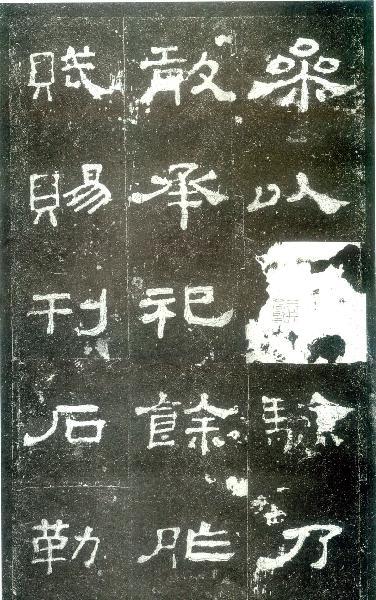 參以
驗乃
敢承祀餘胙
賦賜刊石勒